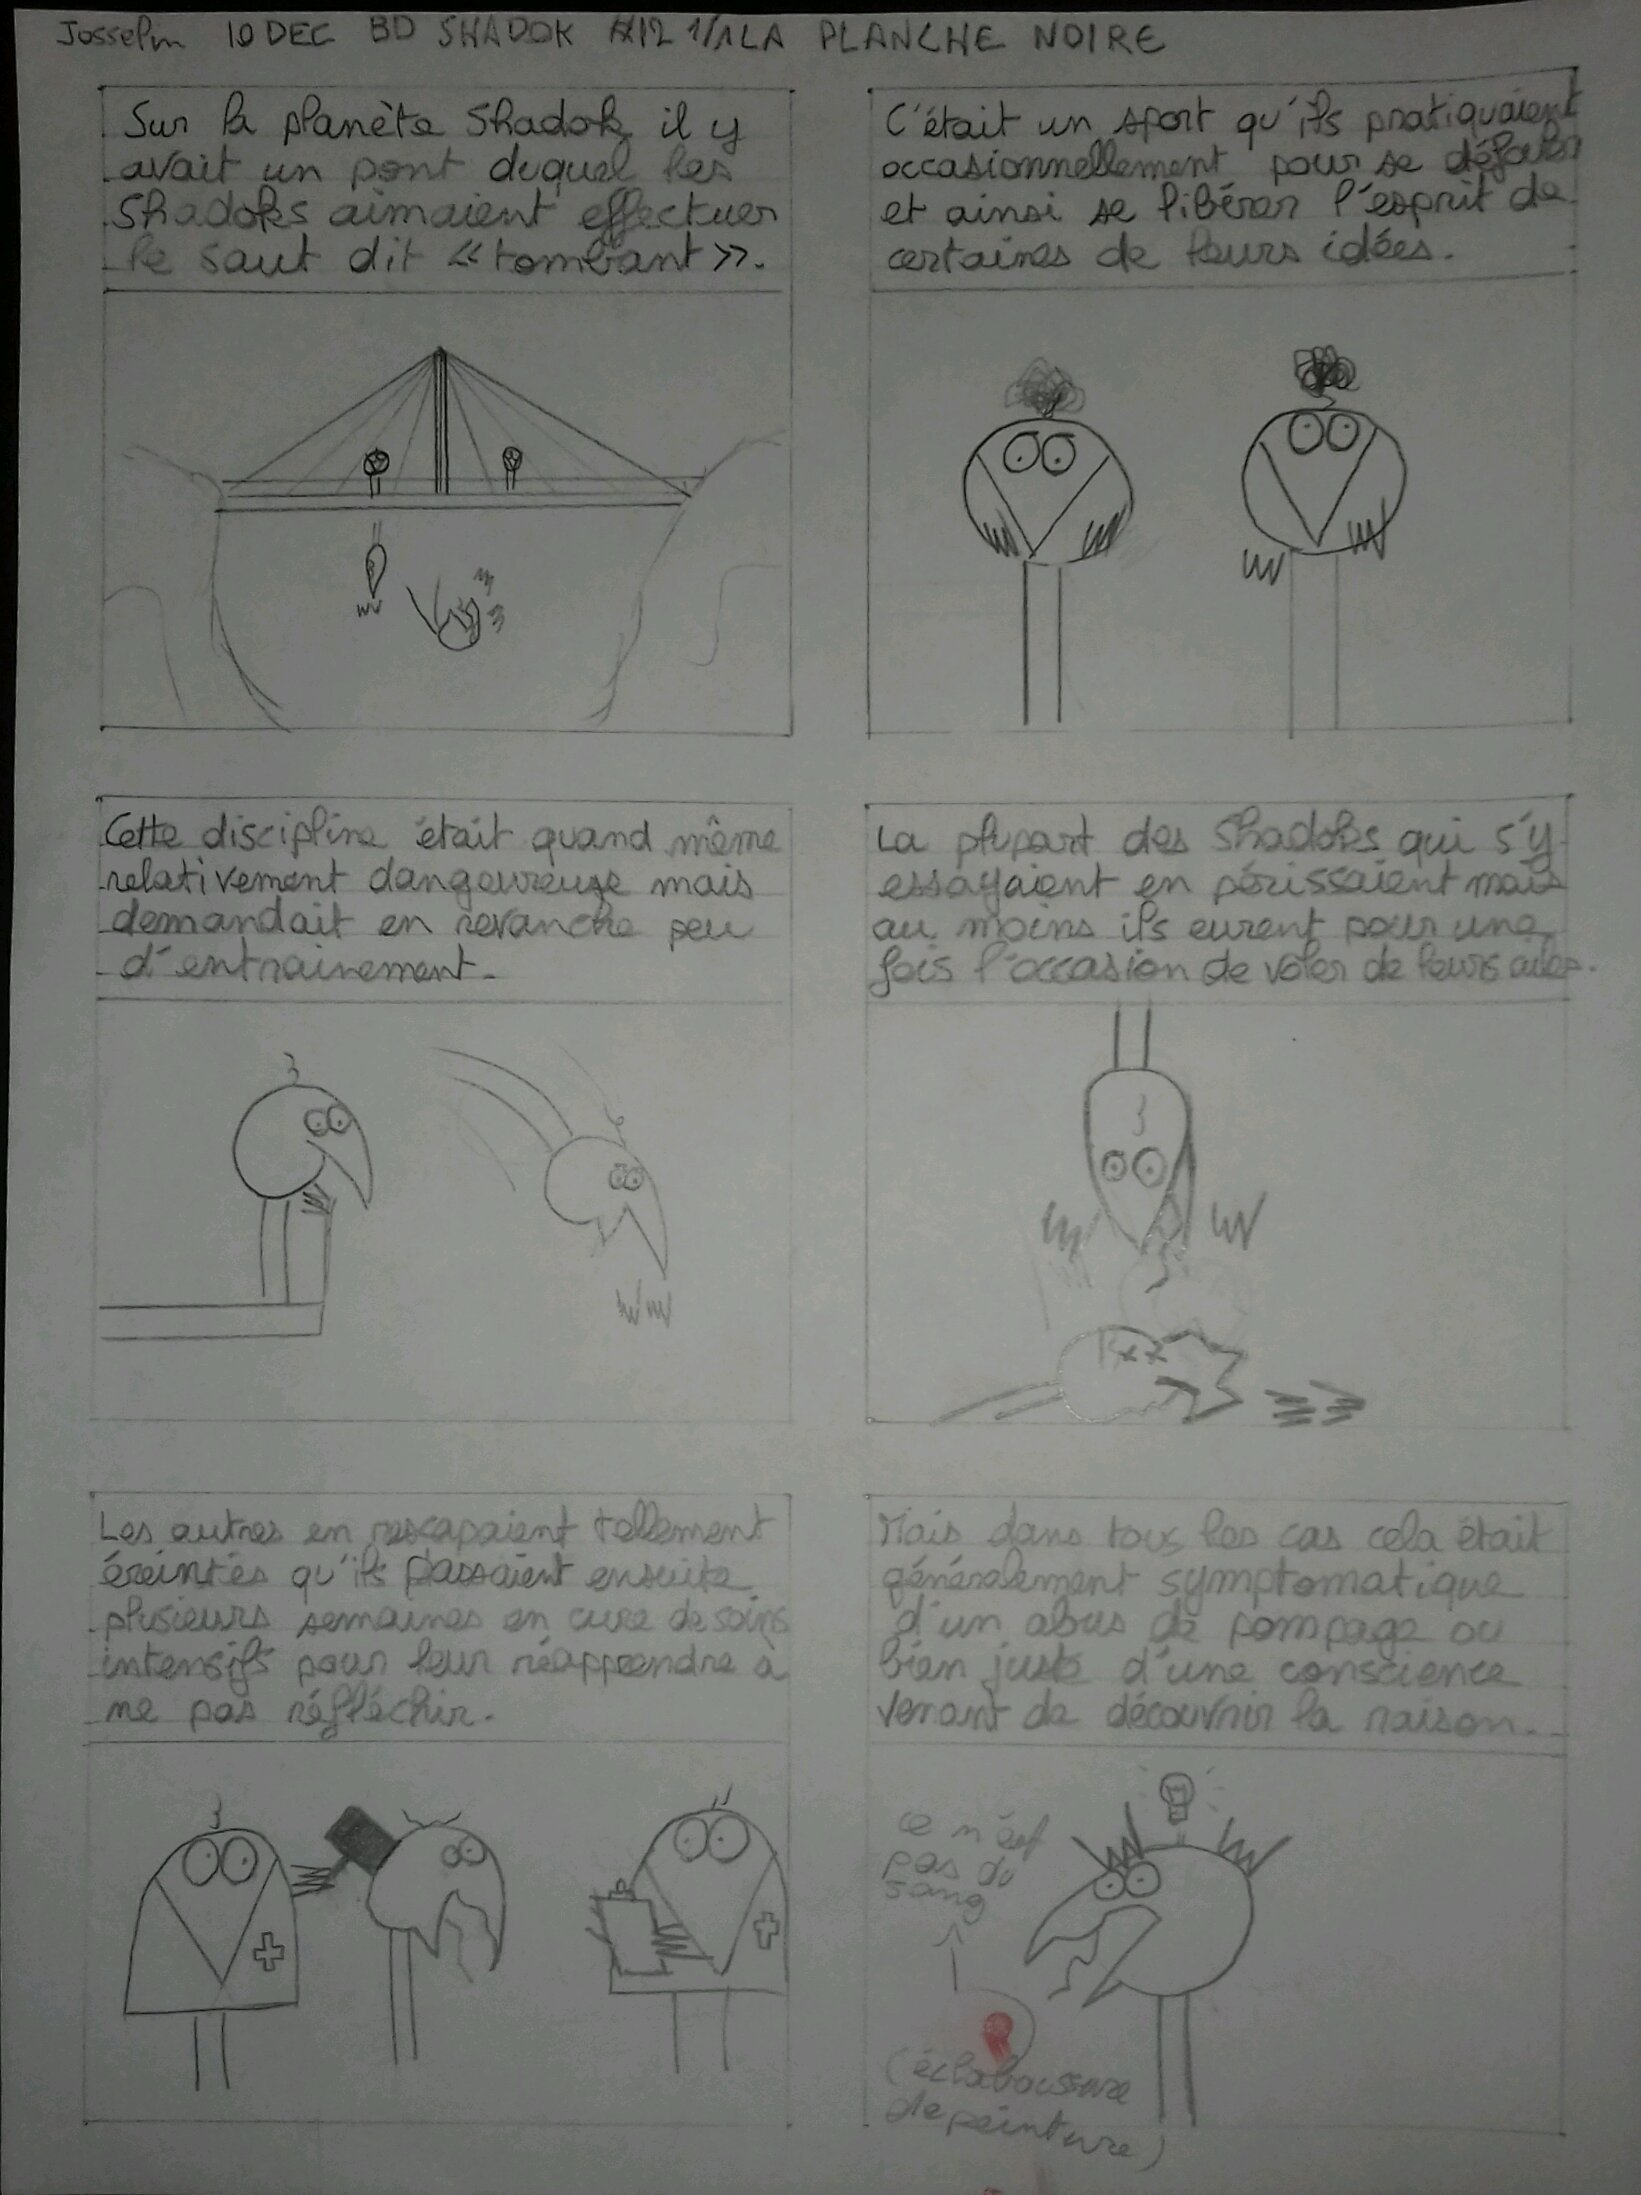 Josselin 10 DEC BD SHADOK #12 1/1 LA PLANCHE NOIRE
Sur la planète Shadok il y
avait un pont duquel les
Shadoks aimaient effectuer
le saut dit « tombant ».
C'était un sport qu'ils pratiquaient
occasionnellement pour se défouler
et ainsi se libérer l'esprit de
certaines de leurs idées.
Cette discipline était quand même
relativement dangeureuse mais
demandait en revanche peu
d'entrainement.
La plupart des Shadoks qui s'y
essayaient en périssaient mais
au moins ils eurent pour une
fois l'occasion de voler de leurs ailes.
Les autres en rescapaient tellement
éreintés qu'ils passaient ensuite
plusieurs semaines en cure de soins
intensifs pour leur réapprendre à
ne pas réfléchir.
Mais dans tous les cas cela était
généralement symptomatique
d'un abus de pompage ou
bien juste d'une conscience
venant de découvrir la raison.
ce n'est
pas du
sang
(éclaboussure
de peinture)